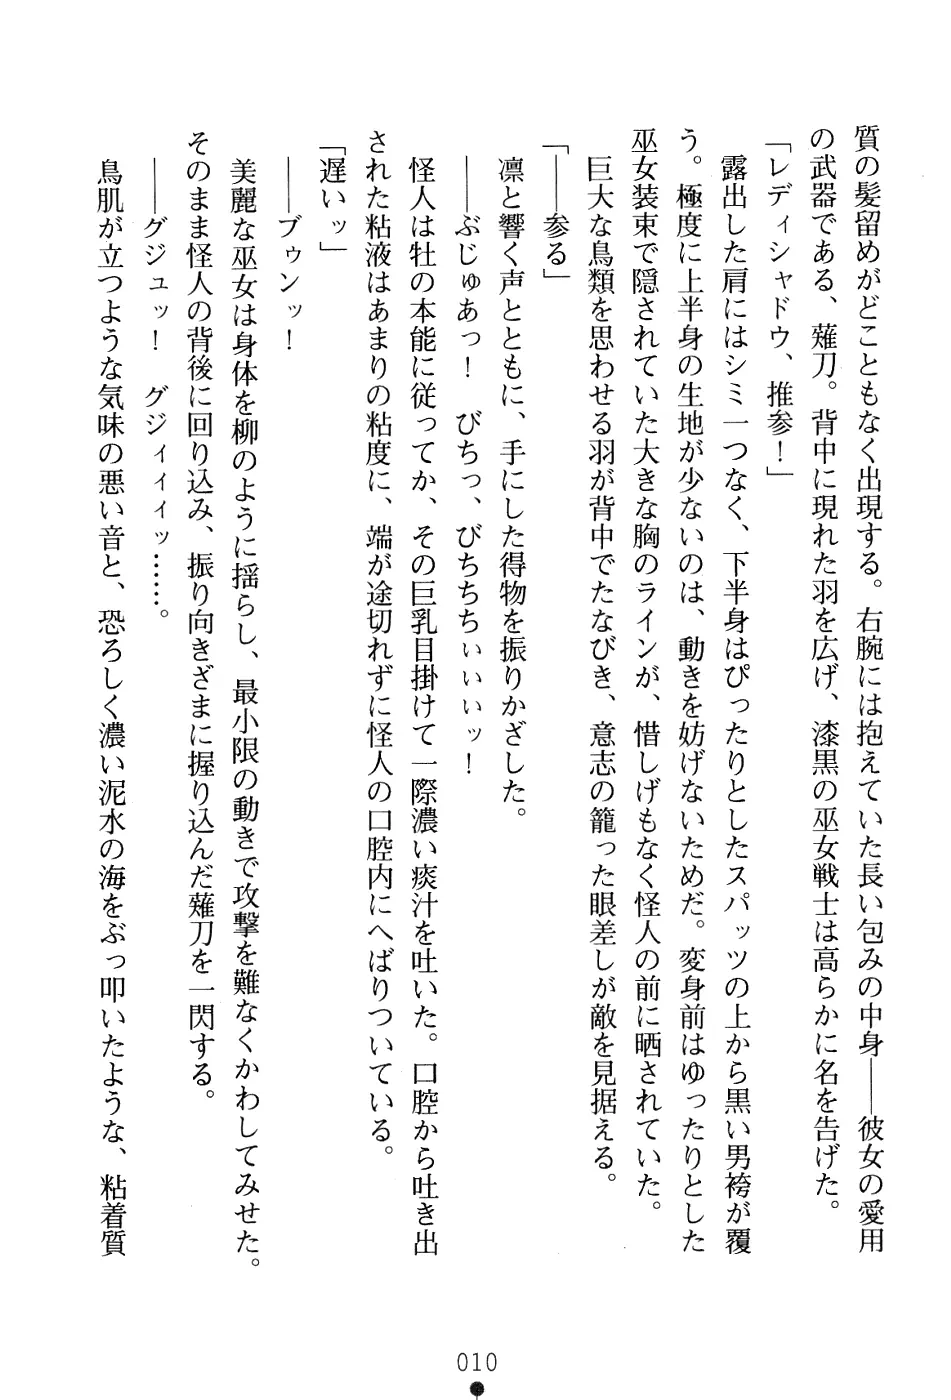 質の髪留めがどこともなく出現する。右腕には抱えていた長い包みの中身――彼女の愛用
の武器である、薙刀。背中に現れた羽を広げ、漆黒の巫女戦士は高らかに名を告げた。
「レディシャドウ、推参！」
露出した肩にはシミ一つなく、下半身はぴったりとしたスパッツの上から黒い男袴が覆
う。極度に上半身の生地が少ないのは、動きを妨げないためだ。変身前はゆったりとした
巫女装束で隠されていた大きな胸のラインが、惜しげもなく怪人の前に晒されていた。
巨大な鳥類を思わせる羽が背中でたなびき、意志の籠った眼差しが敵を見据える。
「――参る」
凛と響く声とともに、手にした得物を振りかざした。
――ぶじゅあっ！　びちっ、びちちちぃぃぃッ！
怪人は牡の本能に従ってか、その巨乳目掛けて一際濃い痰汁を吐いた。口腔から吐き出
された粘液はあまりの粘度に、端が途切れずに怪人の口腔内にへばりついている。
「遅いッ」
――ブゥンッ！
美麗な巫女は身体を柳のように揺らし、最小限の動きで攻撃を難なくかわしてみせた。
そのまま怪人の背後に回り込み、振り向きざまに握り込んだ薙刀を一閃する。
――グジュッ！　グジィィィッ……。
鳥肌が立つような気味の悪い音と、恐ろしく濃い泥水の海をぶっ叩いたような、粘着質
010